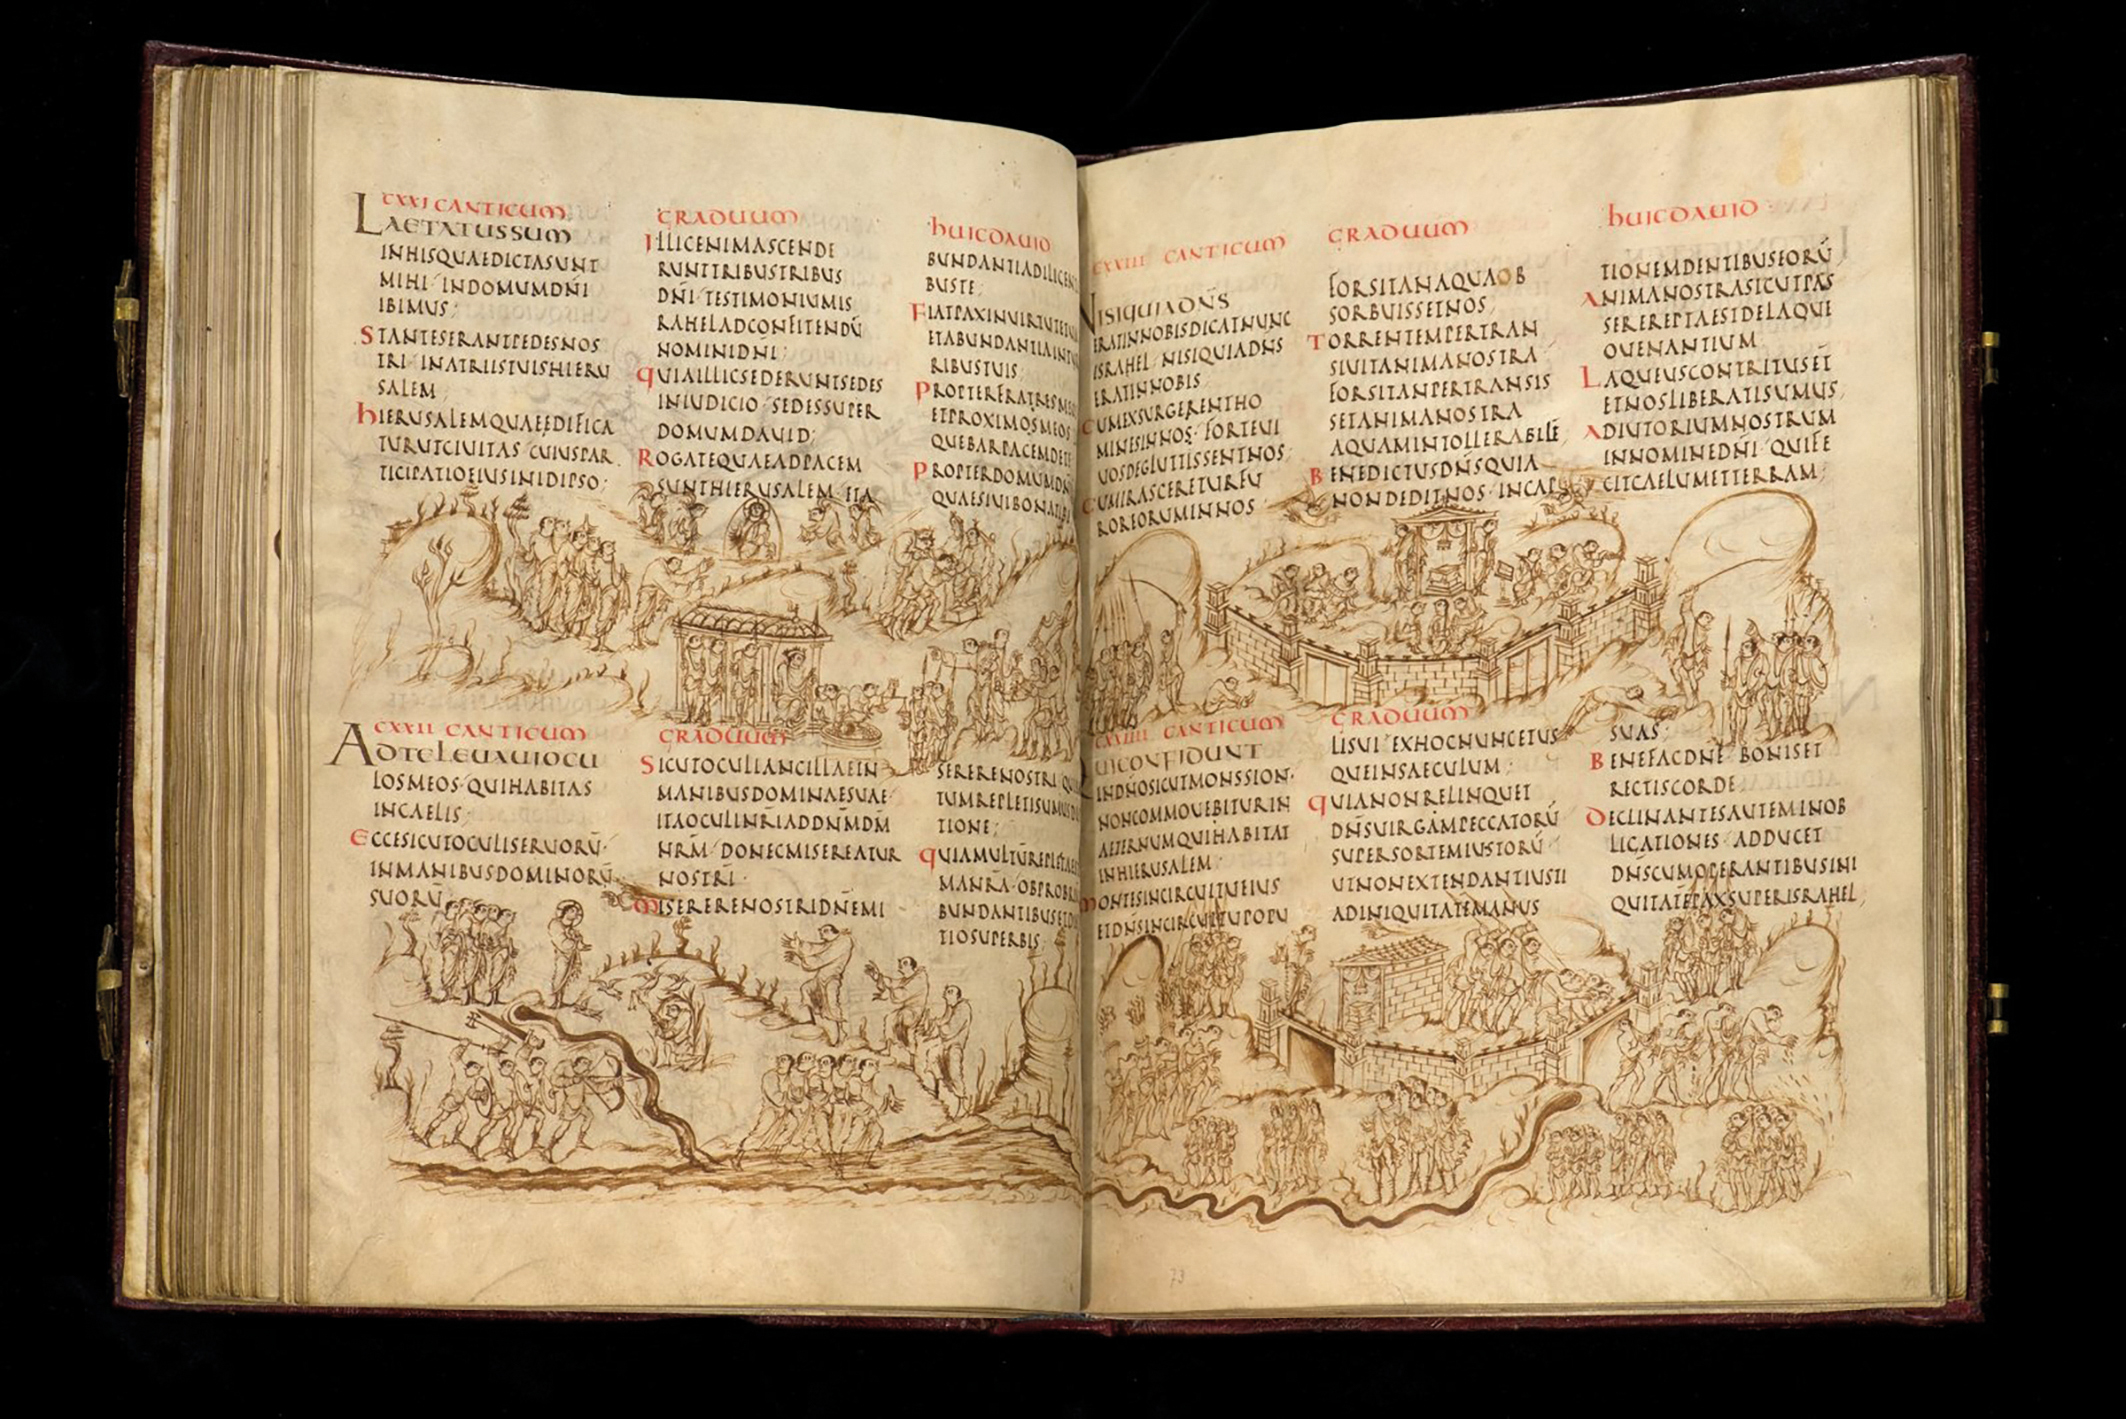 CXXI CANTICUM
LAETATUSSUM
INHISQUAEDICTASUNT
MIHI INDOMUMDNI
IBIMUS;
STANTESERANTPEDESNOS
TRI INATRIISTUISHIERU
SALEM
HIERUSALEMQUAEEDIFICA
TURUTCIUITAS CUIUSPAR
TICIPATIOEIUSINIDIPSO;
GRADUUM
ILLICENIMASCENDE
RUNTTRIBUSTRIBUS
DNI TESTIMONIUMIS
RAHELADCONFITENDŪ
NOMINIDNI;
QUIAILLICSEDERUNTSEDES
INIUDICIO SEDESSUPER
DOMUMDAUID;
ROGATEQUAEADPACEM
SUNTHIERUSALEM ETA
HUICDAUID
BUNDANTIADILIGEN
BUSTE;
FIATPAXINUIRTUTE
ETABUNDANTIAIN
RIBUSTUIS
PROPTERFRATRESME
ETPROXIMOSMEOS
QUEBARPACEMDETE
PROPTERDOMUMDN
QUAESIUIBONATIBI
CXXII CANTICUM
ADTELEUAUIOCU
LOSMEOS QUIHABITAS
INCAELIS;
ECCESICUTOCULISERUORŪ
INMANIBUSDOMINORŪ
SUORŪ
GRADUUM
SICUTOCULIANCILLAEIN
MANIBUSDOMINAESUAE
ITAOCULINRIADDNMDM
NRM DONECMISEREATUR
NOSTRI
MISERERENOSTRIDNEMI
SERERENOSTRI QUI
TUMREPLETISUMUS
TIONE;
QUIAMULTŪREPLETA
MANRA OBPROBRI
BUNDANTIBUSET
TIOSUPERBIS
CXXIII CANTICUM
NISIQUIADNS
ERATINNOBISDICATNUNC
ISRAHEL NISIQUIADNS
ERATINNOBIS
CUMEXSURGERENTHO
MINESINNOS FORTEUI
UOSDEGLUTTISSENTNOS
CUMIRASCERETURFU
ROREORUMINNOS
GRADUUM
FORSITANAQUAOB
SORBUISSETNOS
TORRENTEMPERTRAN
SIUITANIMANOSTRA
FORSITANPERTRANSIS
SETANIMANOSTRA
AQUAMINTOLLERABILĒ
BENEDICTUSDNSQUIA
NONDEDITNOS INCAP
HUICDAUID
TIONEMDENTIBUSEORŪ
ANIMANOSTRASICUTPAS
SEREREPTAESTDELAQUE
OUENANTIUM
LAQUEUSCONTRITUSET
ETNOSLIBERATISUMUS
ADIUTORIUMNOSTRUM
INNOMINEDNI QUIFE
CITCAELUMETTERRAM;
CXXIIII CANTICUM
QUICONFIDUNT
INDNOSICUTMONSSION
NONCOMMOUEBITURIN
AETERNUMQUIHABITAT
INHIERUSALEM
MONTESINCIRCUITUEIUS
ETDNSINCIRCUITUPOPU
GRADUUM
LISUI EXHOCNUNCETUS
QUEINSAECULUM
QUIANONRELINQUET
DNSUIRGAMPECCATORŪ
SUPERSORTEMIUSTORŪ
UTNONEXTENDANTIUSTI
ADINIQUITATĒMANUS
SUAS
BENEFACDNE BONISET
RECTISCORDE
DECLINANTESAUTEMINOB
LIGATIONES ADDUCET
DNSCUMOPERANTIBUSINI
QUITATĒPAXSUPERISRAHEL
73